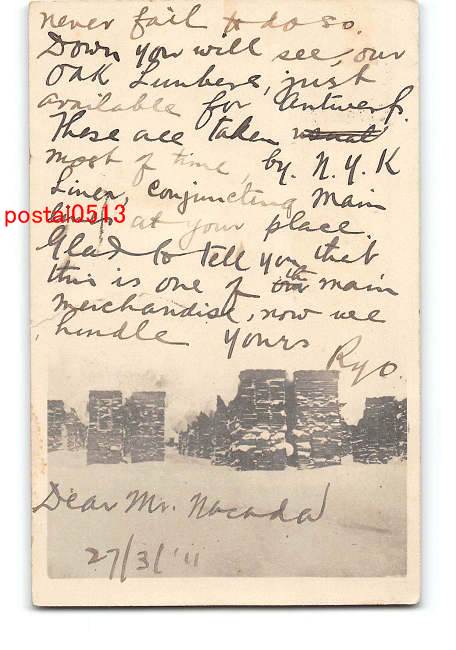 never fail to do so.
Down you will see, our
Oak Lumbers, just
available for Antwerp.
These are taken usual
most of time, by. N. Y. K
Liner, conjuncting main
at your place.
Glad to tell you that
this is one of our the main
merchandise, now we
handle yours
Ryo
Dear Mr. Nacada
27/3/'11
postal0513